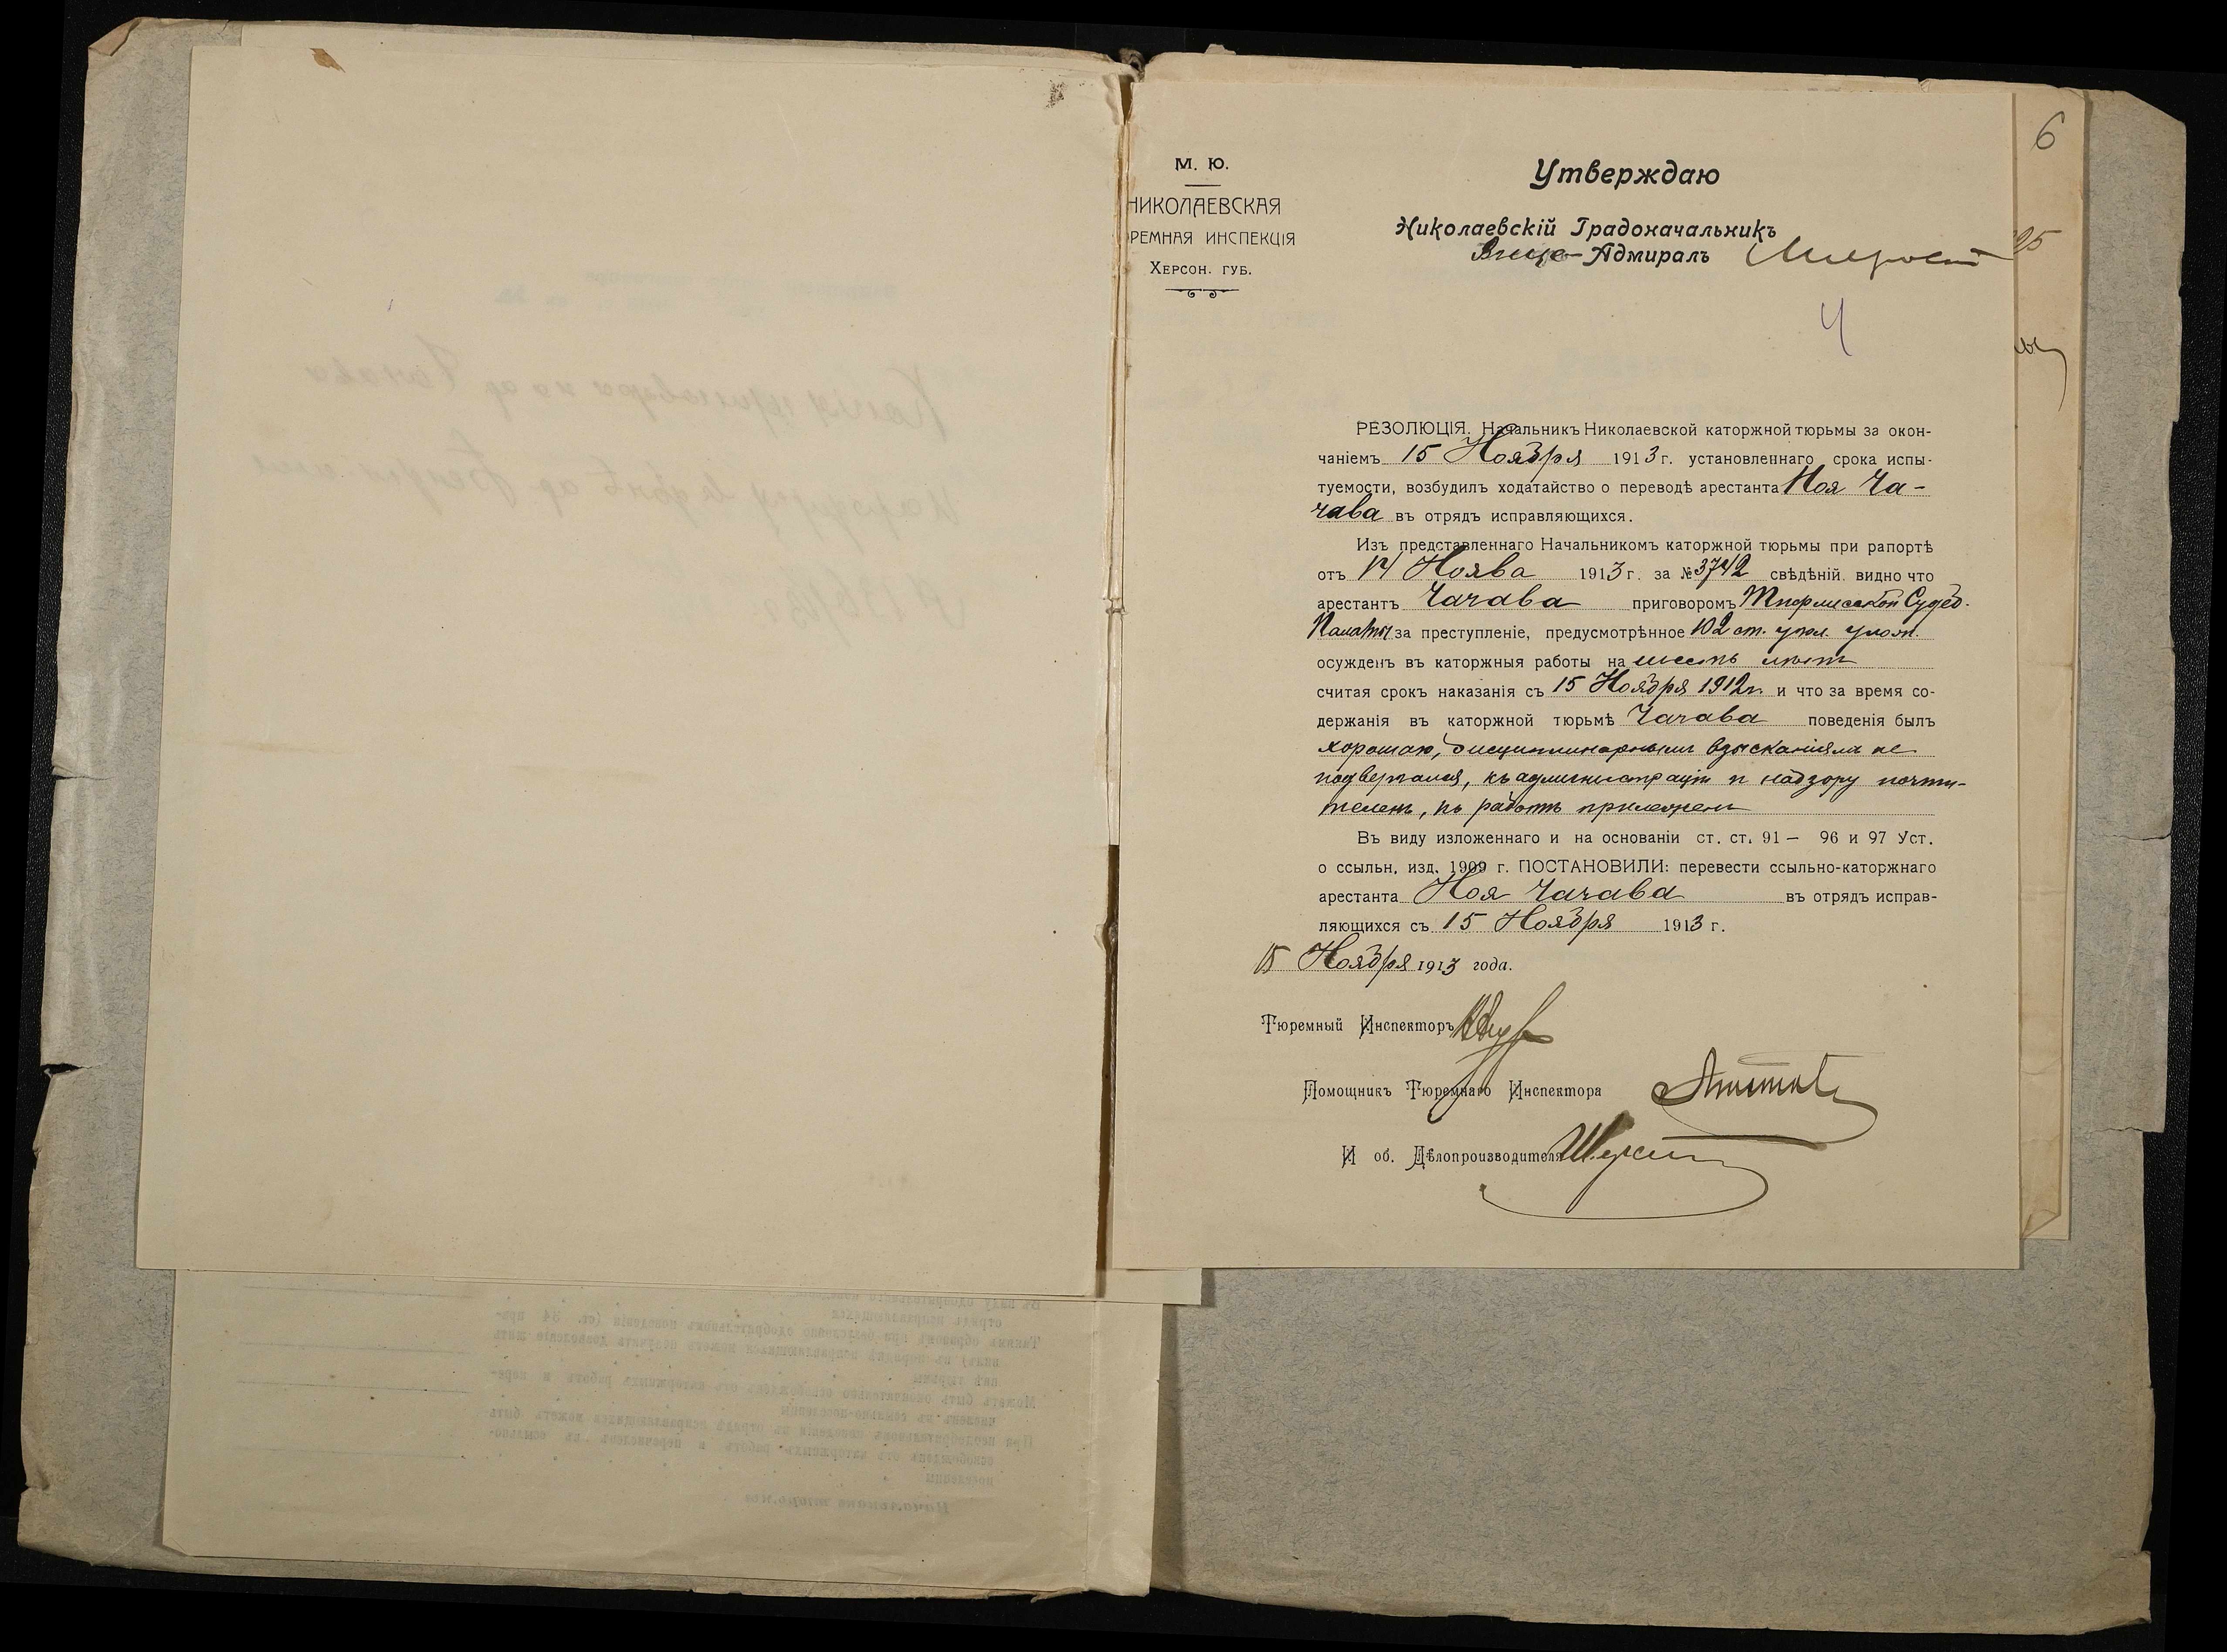 6
М. Ю.
НИКОЛАЕВСКАЯ
РЕМНАЯ ИНСПЕКЦІЯ
ХЕРСОН. ГУБ.
Утверждаю
Николаевскій Градоначальникъ
Вице-Адмиралъ
25
4
РЕЗОЛЮЦІЯ. Начальникъ Николаевской каторжной тюрьмы за окон-
чаніемъ 15 Ноября 1913 г. установленнаго срока испы-
туемости, возбудилъ ходатайство о переводѣ арестанта Ноя Ча-
чава въ отрядъ исправляющихся.
Изъ представленнаго Начальникомъ каторжной тюрьмы при рапортѣ
отъ 14 Ноява 1913 г. за № 3742 свѣдѣній. видно что
арестантъ Чачава приговоромъ Тифлисской Судеб.
Палаты за преступленіе, предусмотрѣнное 102 ст. угол. улож.
осужденъ въ каторжныя работы на шесть лѣтъ
считая срокъ наказанія съ 15 Ноября 1912 г. и что за время со-
держанія въ каторжной тюрьмѣ Чачава поведенія былъ
хорошаю, дисциплинарнымъ взысканіямъ не
подвергался, къ администраціи и надзору почти-
теленъ, къ работѣ прилеженъ
Въ виду изложеннаго и на основаніи ст. ст. 91 — 96 и 97 Уст.
о ссыльн. изд. 1909 г. ПОСТАНОВИЛИ: перевести ссыльно-каторжнаго
арестанта Ноя Чачава въ отрядъ исправ-
ляющихся съ 15 Ноября 1913 г.
15 Ноября 1913 года.
Тюремный Инспекторъ
Помощникъ Тюремнаго Инспектора
И об. Дѣлопроизводителя